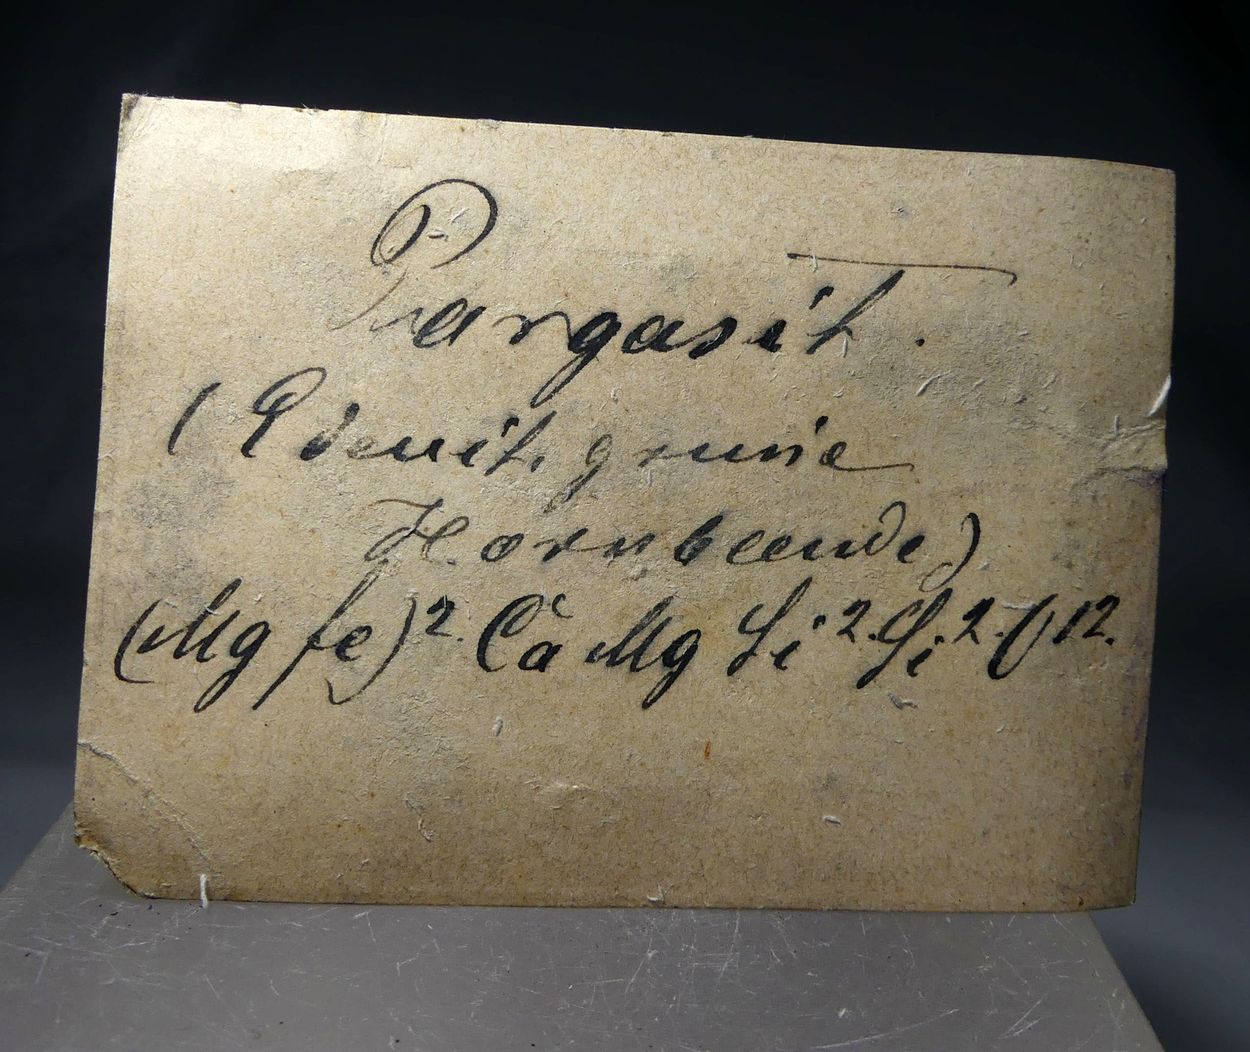 Pargasit.
(Edenit, grüne
Hornbleende)
(Mg fe)². Ca Mg Si².Si².O¹².